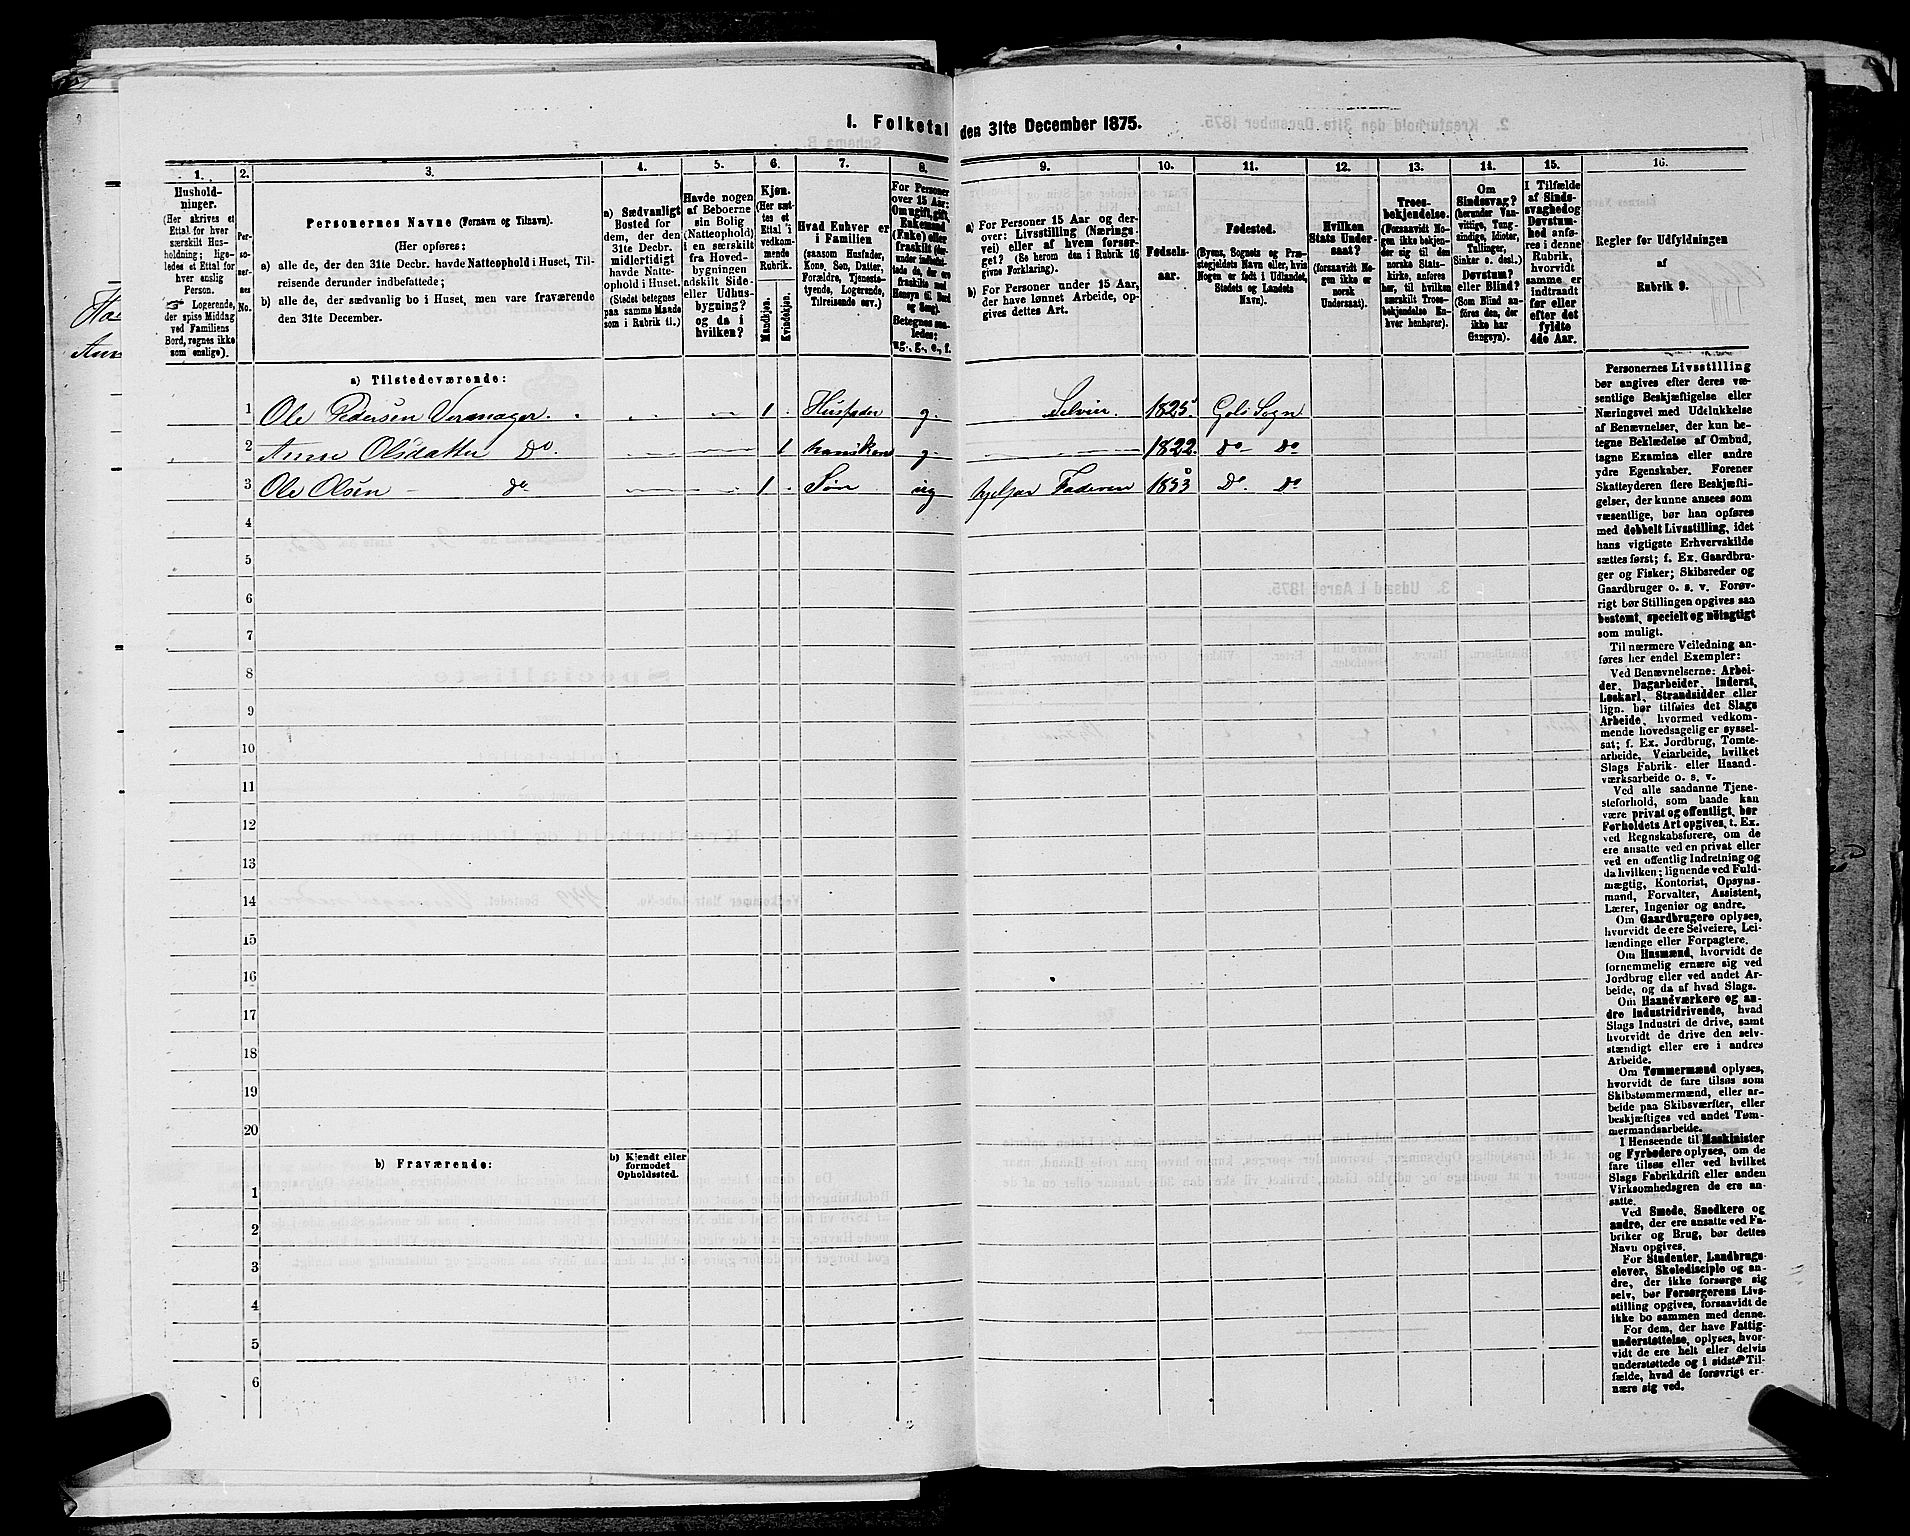 I. Folketal den 31te December 1875.
1. 2. 3. 4. 5. 6. 7. 8. 9. 10. 11. 12. 13. 14. 15. 16.
Hushold-
ninger.
(Her skrives et
Ettal for hver
særskilt Hus-
holdning; lige-
ledes et Ettal for
hver enslig
Person.
Logerende,
der spise Middag
ved Familiens
Bord, regnes ikke
som enslige).
Per-
soner-
nes
No.
Personernes Navne (Fornavn og Tilnavn).
(Her opføres:
a) alle de, der den 31te Decbr. havde Natteophold i Huset, Til-
reisende derunder indbefattede;
b) alle de, der sædvanlig bo i Huset, men vare fraværende
den 31te December.
a) Sædvanligt
Bosted for
dem, der den
31te Decbr.
midlertidigt
havde Natte-
ophold i Huset.
(Stedet betegnes
paa samme Maade
som i Rubrik 11.)
Havde nogen
af Beboerne
sin Bolig
(Natteophold)
i en særskilt
fra Hoved-
bygningen
adskilt Side-
eller Udhus-
bygning?
og da i
hvilken?
Kjøn.
(Her sæt-
tes et
Ettal i
vedkom-
mende
Rubrik.
Mandkjøn.
Kvindekjøn.
Hvad Enhver er
i Familien
(saasom Husfader,
Kone, Søn, Datter,
Forældre, Tjeneste-
tyende, Logerende,
Tilreisende osv.)
For Personer
over 15 Aar:
Om ugift, gift,
Enkemand
(Enke) eller
fraskilt
Betegnes saa-
ledes:
ug., g., e., f.
a) For Personer 15 Aar og der-
over: Livsstilling (Nærings-
vei) eller af hvem forsør-
get? (Se herom den i Rubrik 16
givne Forklaring).
b) For Personer under 15 Aar,
der have lønnet Arbeide, op-
gives dettes Art.
Fødsels-
aar.
Fødested.
(Byens, Sognets og Præ-
stegjeldets Navn eller, hvis
Nogen er født i Udlandet,
Stedets og Landets
Navn).
Hvilken
Stats Under-
saat?
(forsaavidt No-
gen ikke er
norsk
Undersaat).
Troes-
bekjendelse.
(Forsaavidt No-
gen ikke bekjen-
der sig til den
norske Stats-
kirke, anføres
her, til hvilken
særskilt Troes-
bekjendelse En-
hver henhører).
Om
Sindssvag?
(herunder Van-
vittige, Tung-
sindige, Idioter,
Tullinger,
Sinker o. desl.)
Døvstum?
eller Blind?
(Som Blind an-
føres den, der
ikke har
Gangsyn).
I Tilfælde
af Sinds-
svaghed og
Døvstum-
hed anfø-
res i denne
Rubrik,
hvorvidt
samme er
indtraadt
før eller
efter det
fyldte
4de Aar.
Regler for Udfyldningen
af
Rubrik 9.
a) Tilstedeværende:
1 Ole Pedersen Vermager 1 Husfader g Selvier. 1825. Gols Sogn
2 Anne Olsdatter Do. 1 hans Kone g. 1822. do do
3 Ole Olsen do 1 Søn ug hjelper Faderen 1853 Do. Do
4
5
6
7
8
9
10
11
12
13
14
15
16
17
18
19
20
b) Fraværende:
b) Kjendt eller
formodet
Opholdssted.
1
2
3
4
5
6
Personernes Livsstilling
bør angives efter deres væ-
sentlige Beskjæftigelse eller
Næringsvei med Udelukkelse
af Benævnelser, der kun be-
tegne Beklædelse af Ombud,
tagne Examina eller andre
ydre Egenskaber. Forener
Skatteyderen flere Beskjæfti-
gelser, der kunne ansees som
væsentlige, bør han opføres
med dobbelt Livsstilling, idet
hans vigtigste Erhvervskilde
sættes først; f. Ex. Gaardbru-
ger og Fisker; Skibsreder og
Gaardbruger o. s. v. Forøv-
rigt bør Stillingen opgives saa
bestemt, specielt og nøiagtigt
som muligt.
Til nærmere Veiledning an-
føres her endel Exempler:
Ved Benævnelserne: Arbei-
der, Dagarbeider, Inderst,
Løskarl, Strandsidder eller
lign. bør tilføies det Slags
Arbeide, hvormed vedkom-
mende hovedsagelig er syssel-
sat; f. Ex. Jordbrug, Tomte-
arbeide, Veiarbeide, hvilket
Slags Fabrik- eller Haand-
værksarbeide o. s. v.
Ved alle saadanne Tjene-
steforhold, som baade kan
være privat og offentligt, bør
Forholdets Art opgives, t. Ex.
ved Regnskabsførere, om de
ere ansatte ved en privat eller
ved en offentlig Indretning og
da hvilken; lignende ved Fuld-
mægtig, Kontorist, Opsyns-
mand, Forvalter, Assistent,
Lærer, Ingeniør og andre.
Om Gaardbrugere oplyses,
hvorvidt de ere Selveiere, Lei-
lændinge eller Forpagtere.
Om Husmænd, hvorvidt de
fornemmelig ernære sig ved
Jordbrug eller ved andet Ar-
beide, og da af hvad Slags.
Om Haandværkere og an-
dre Industridrivende, hvad
Slags Industri de drive, samt
hvorvidt de drive den selv-
stændigt eller ere i andres
Arbeide.
Om Tømmermænd oplyses,
hvorvidt de fare tilsøs som
Skibstømmermænd, eller ar-
beide paa Skibsværfter, eller
beskjæftiges ved andet Tøm-
mermandsarbeide.
I Henseende til Maskinister
og Fyrbødere oplyses, om de
fare tilsøs eller ved hvilket
Slags Fabrikdrift eller anden
Virksomhedsgren de ere an-
satte.
Ved Smede, Snedkere og
andre, der ere ansatte ved Fa-
briker og Brug, bør dettes
Navn opgives.
For Studenter, Landbrugs-
elever, Skoledisciple og an-
dre, der ikke forsørge sig
selv, bør Forsørgerens Livs-
stilling opgives, forsaavidt de
ikke bo sammen med denne.
For dem, der have Fattig-
understøttelse, oplyses, hvor-
vidt de ere helt eller delvis
understøttede og i sidste Til-
fælde, hvad de forøvrigt er-
nære sig ved.